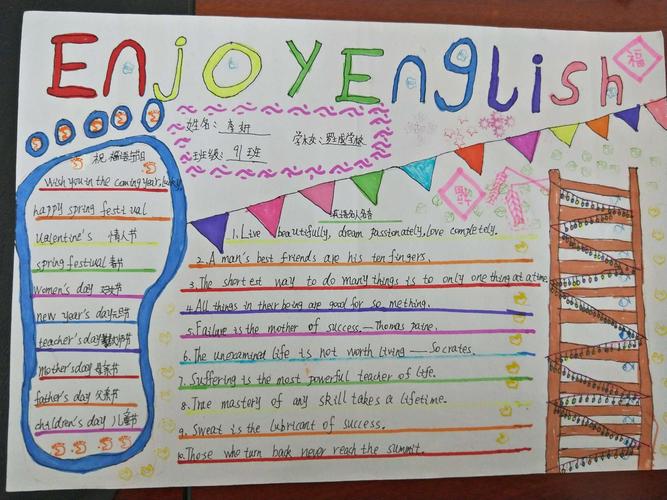 Enjoy English
福
姓名：李妍
学校：
班级：91班
祝福语节日
Wish you in the coming year, lucky
happy spring festival
Valentine's 情人节
spring festival 春节
Women's day
new year's day 元旦节
teacher's day 教师节
Mother's day 母亲节
father's day 父亲节
children's day 儿童节
英语名人名言
1. Live beautifully, dream passionately, love completely.
2. A man's best friends are his ten fingers.
3. The shortest way to do many things is to only one thing at a time
4. All things in their being are good for so mething.
5. Failure is the mother of success. — Thomas paine.
6. The unexamined life is not worth living — Socrates.
7. Suffering is the most powerful teacher of life.
8. True mastery of any skill takes a lifetime.
9. Sweat is the lubricant of success.
10. Those who turn back never reach the summit.